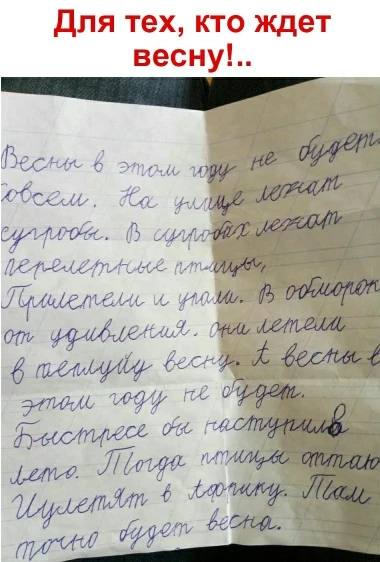 Для тех, кто ждет
весну!..
Весны в этом году не будет
совсем. На улице лежат
сугробы. В сугробах лежат
перелетные птицы,
Прилетели и упали. В обморок
от удивления. они летели
в теплуйу весну. А весны в
этом году не будет.
Быстрее бы наступило
лето. Тогда птицы оттаю
Иулетят в Африку. Там
точно будет весна.